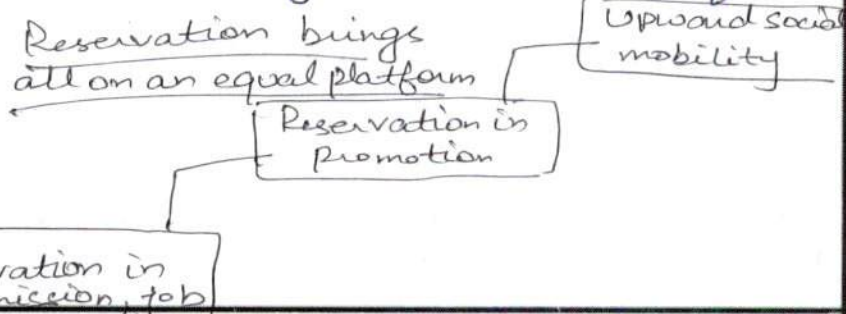 Reservation brings
all on an equal platform
Upward social
mobility
Reservation in
promotion
vation in
mission, job